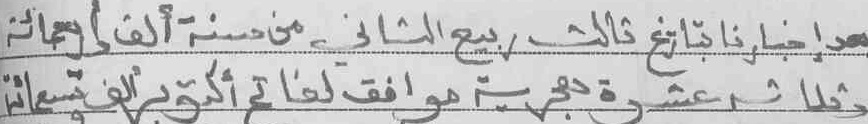 إخبارنا بتاريخ ثالث ربيع الثاني من سنة ألف وأربعمائة
وثلاثة عشرة هجرية موافق لفاتح أكتوبر ألف وتسعمائة